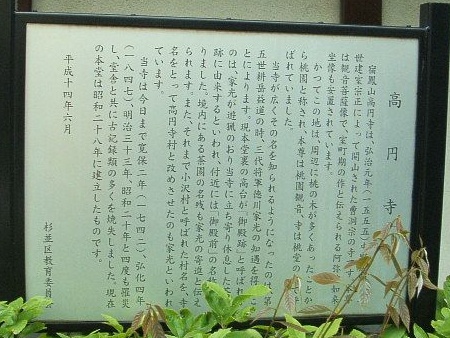 高円寺
宿鳳山高円寺は、弘治元年(一五五五)
世建室宗正によって開山された曹洞宗の寺です。本尊
は観音菩薩像で、室町期の作と伝えられる阿弥陀如来
坐像も安置されています。
かつてこの地は周辺に桃の木が多くあったことか
ら桃園と称され、本尊は桃園観音、寺は桃堂の
ばれていました。
当寺が広くその名を知られるようになったのは、第
五世耕岳益道の時、三代将軍徳川家光の知遇を得たこ
とによります。現本堂裏の高台が「御殿跡」と呼ばれ
のは、家光が遊猟のおり当寺に立ち寄り休息した
跡に由来するといわれ、付近には「御殿前」の名も
りました。境内にある茶園の名残も家光の寄進と伝え
られます。また、それまで小沢村と呼ばれた村名を、寺
名をとって高円寺村と改めさせたのも家光といわれ
ています。
当寺は今日まで寛保二年(一七四二)、弘化四年
(一八四七)、明治三十三年・昭和二十年と四度も罹災
し、堂舎と共に古記録類の多くを焼失しました。現在
の本堂は昭和二十八年に建立したものです。
平成十四年六月
杉並区教育委員会